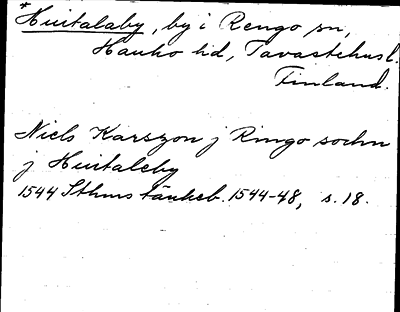 *Huitalaby, by i Rengo sn,
Hauho hd, Tavastehus l.
Finland.
Niels Karszon j Ringo sochn
j Huitaleby
1544 Sthms tänkeb. 1544-48, s. 18.